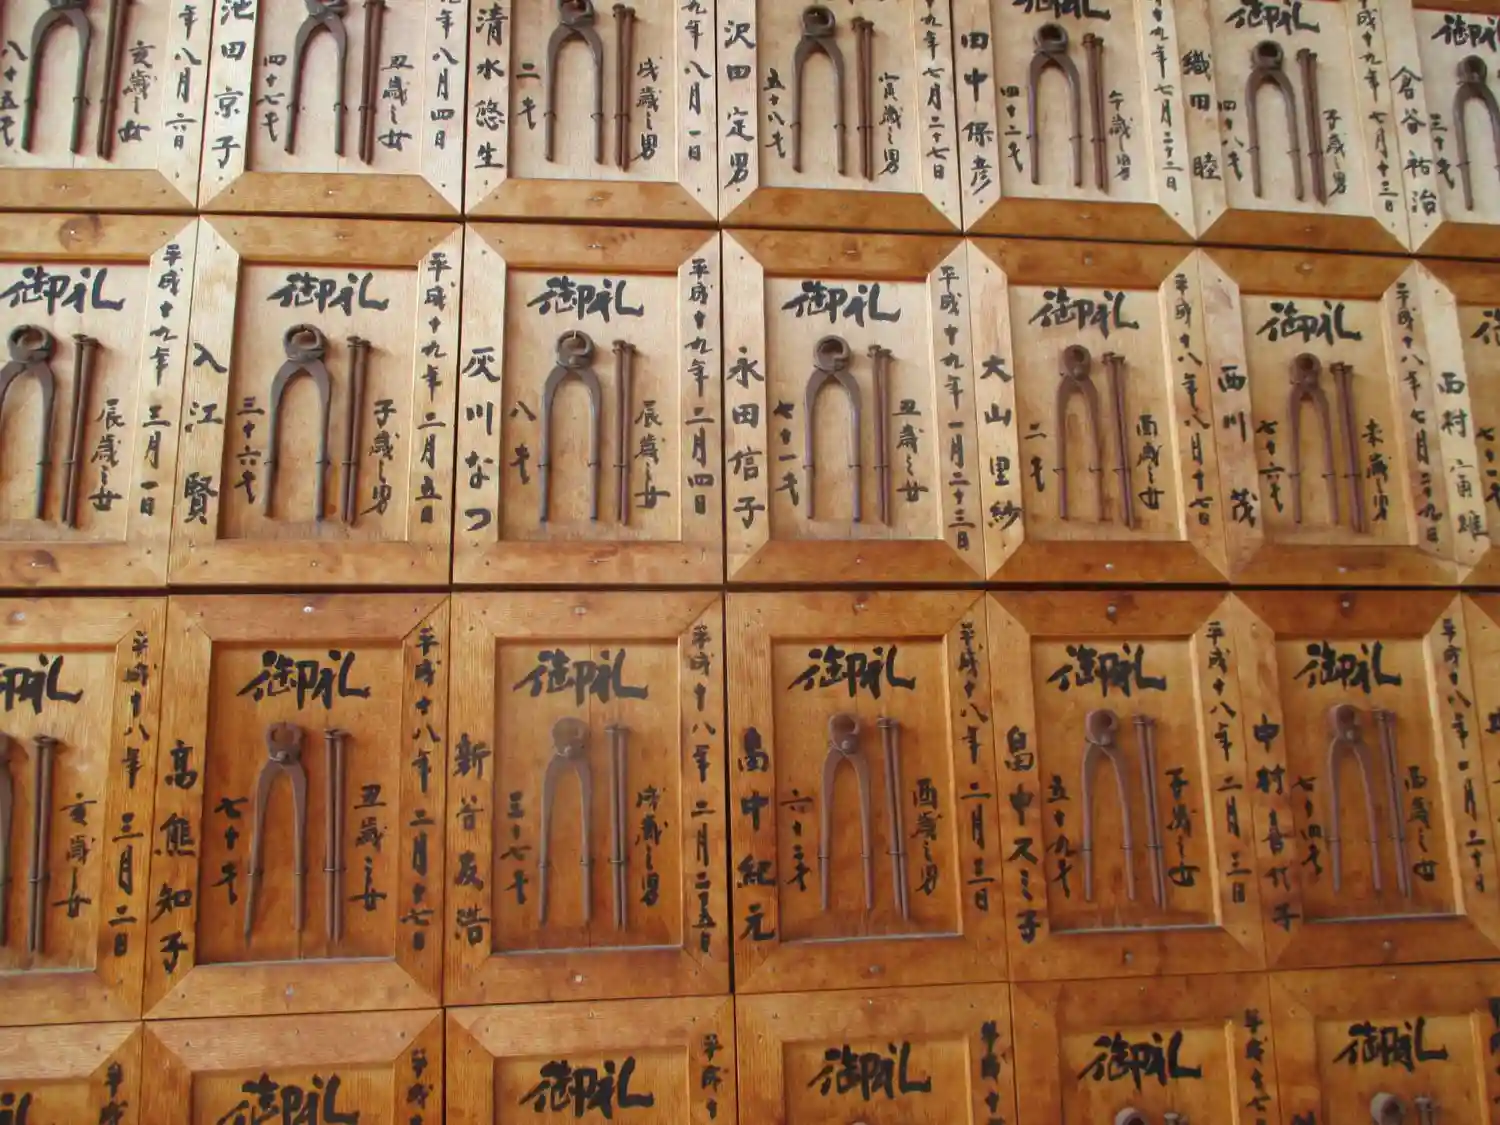 亥歳之女
八十五才
年八月六日
池田京子
丑歳之女
四十七才
年八月四日
清水悠生
戌歳之男
二才
九年八月一日
沢田定男
寅歳之男
五十八才
十九年七月二十七日
御礼
田中保彦
午歳之男
四十二才
十九年七月二十二日
御礼
織田睦
子歳之男
四十八才
平成十九年七月十三日
御礼
倉谷祐治
三十才
御礼
辰歳之女
平成十九年三月一日
御礼
入江賢
子歳之男
三十六才
平成十九年二月五日
御礼
灰川なつ
辰歳之女
八才
平成十九年二月四日
御礼
永田信子
丑歳之女
七十一才
平成十九年一月二十三日
御礼
大山里紗
酉歳之女
二才
平成十八年八月十七日
御礼
西川茂
未歳之男
七十六才
平成十八年七月二十九日
西村
七十一才
御礼
亥歳之女
平成十八年三月二日
御礼
高熊知子
丑歳之女
七十才
平成十八年二月十七日
御礼
新谷友浩
戌歳之男
三十七才
平成十八年二月二十五日
御礼
畠中紀元
酉歳之男
六十二才
平成十八年二月三日
御礼
畠中スミ子
子歳之女
五十九才
平成十八年二月三日
御礼
中村喜代子
酉歳之女
七十四才
平成十八年一月二十日
平成
御礼
平成
御礼
平成十
御礼
平成十
御礼
平成十七
御礼